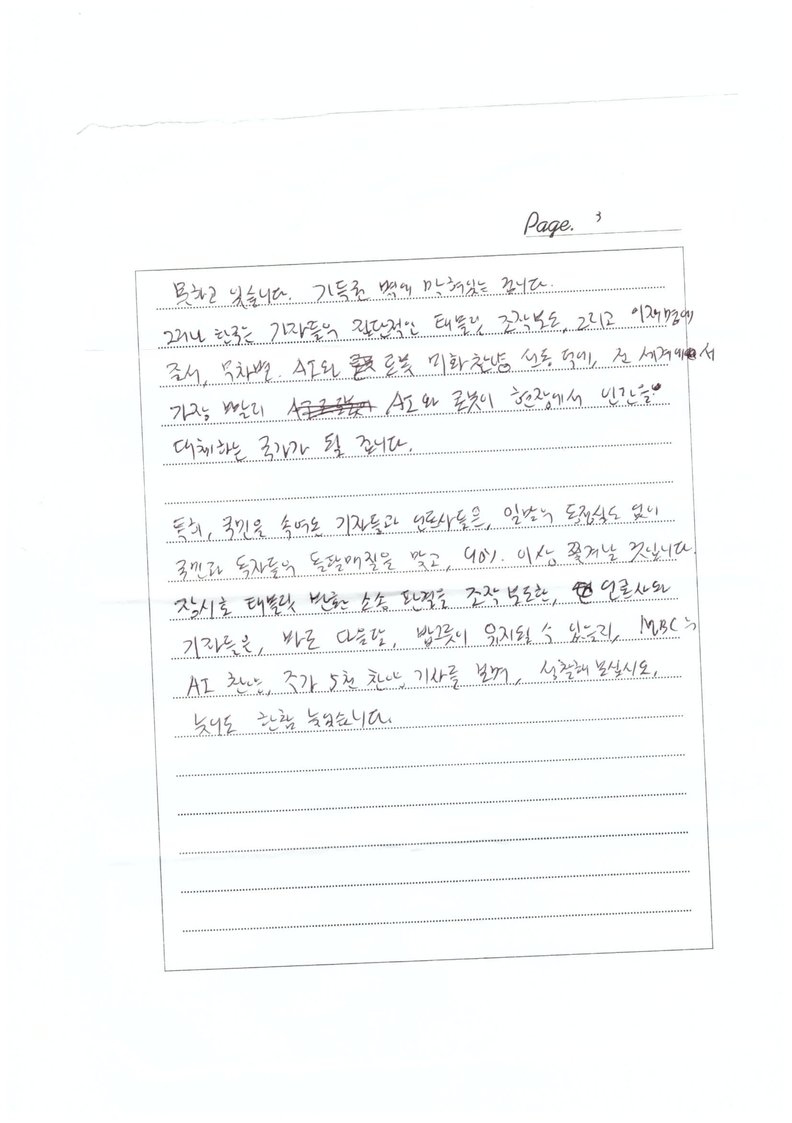 Page. 3
못하고 있습니다. 기득권 벽에 막혀있는 겁니다.
그러나 한국은 기자들의 집단적인 태블릿 조작보도, 그리고 이재명에
줄서, 무차별 AI와 로봇 미화찬양 선동 덕에, 전 세계에서
가장 빨리 AI와 로봇이 현장에서 인간을
대체하는 국가가 될 겁니다.
특히, 국민을 속여온 기자들과 언론사들은, 일말의 동정심도 없이
국민과 독자들의 돌팔매질을 맞고, 90% 이상 쫓겨날 것입니다.
장시호 태블릿 반환 소송 판결을 조작 보도한, 언론사와
기자들은, 바로 다음달, 밥그릇이 유지될 수 있을지, MBC의
AI 찬양, 주가 5천 찬양 기사를 보며, 성찰해 보십시오.
늦어도 한참 늦었습니다.